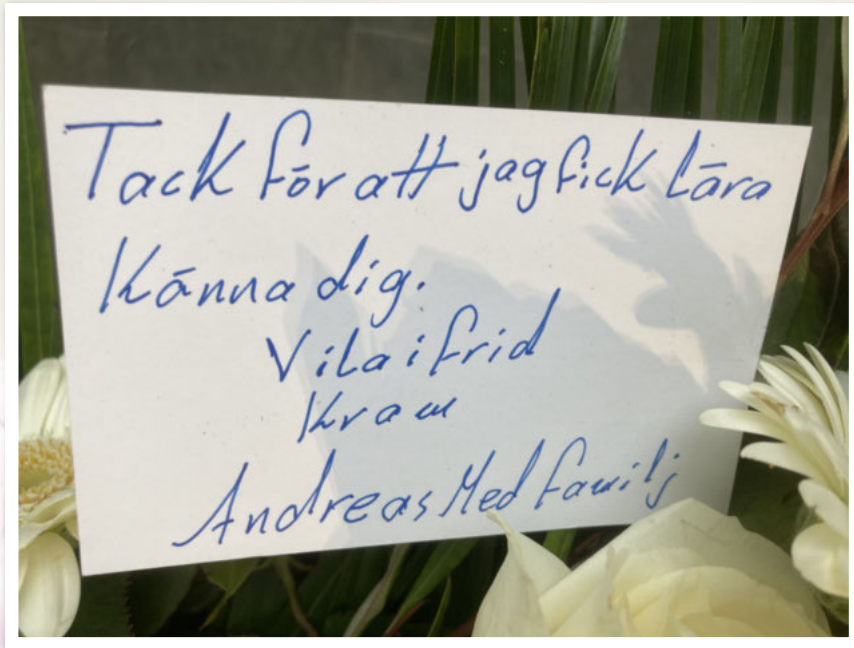 Tack för att jag fick lära
Känna dig.
Vila i frid
Kram
Andreas Med familj